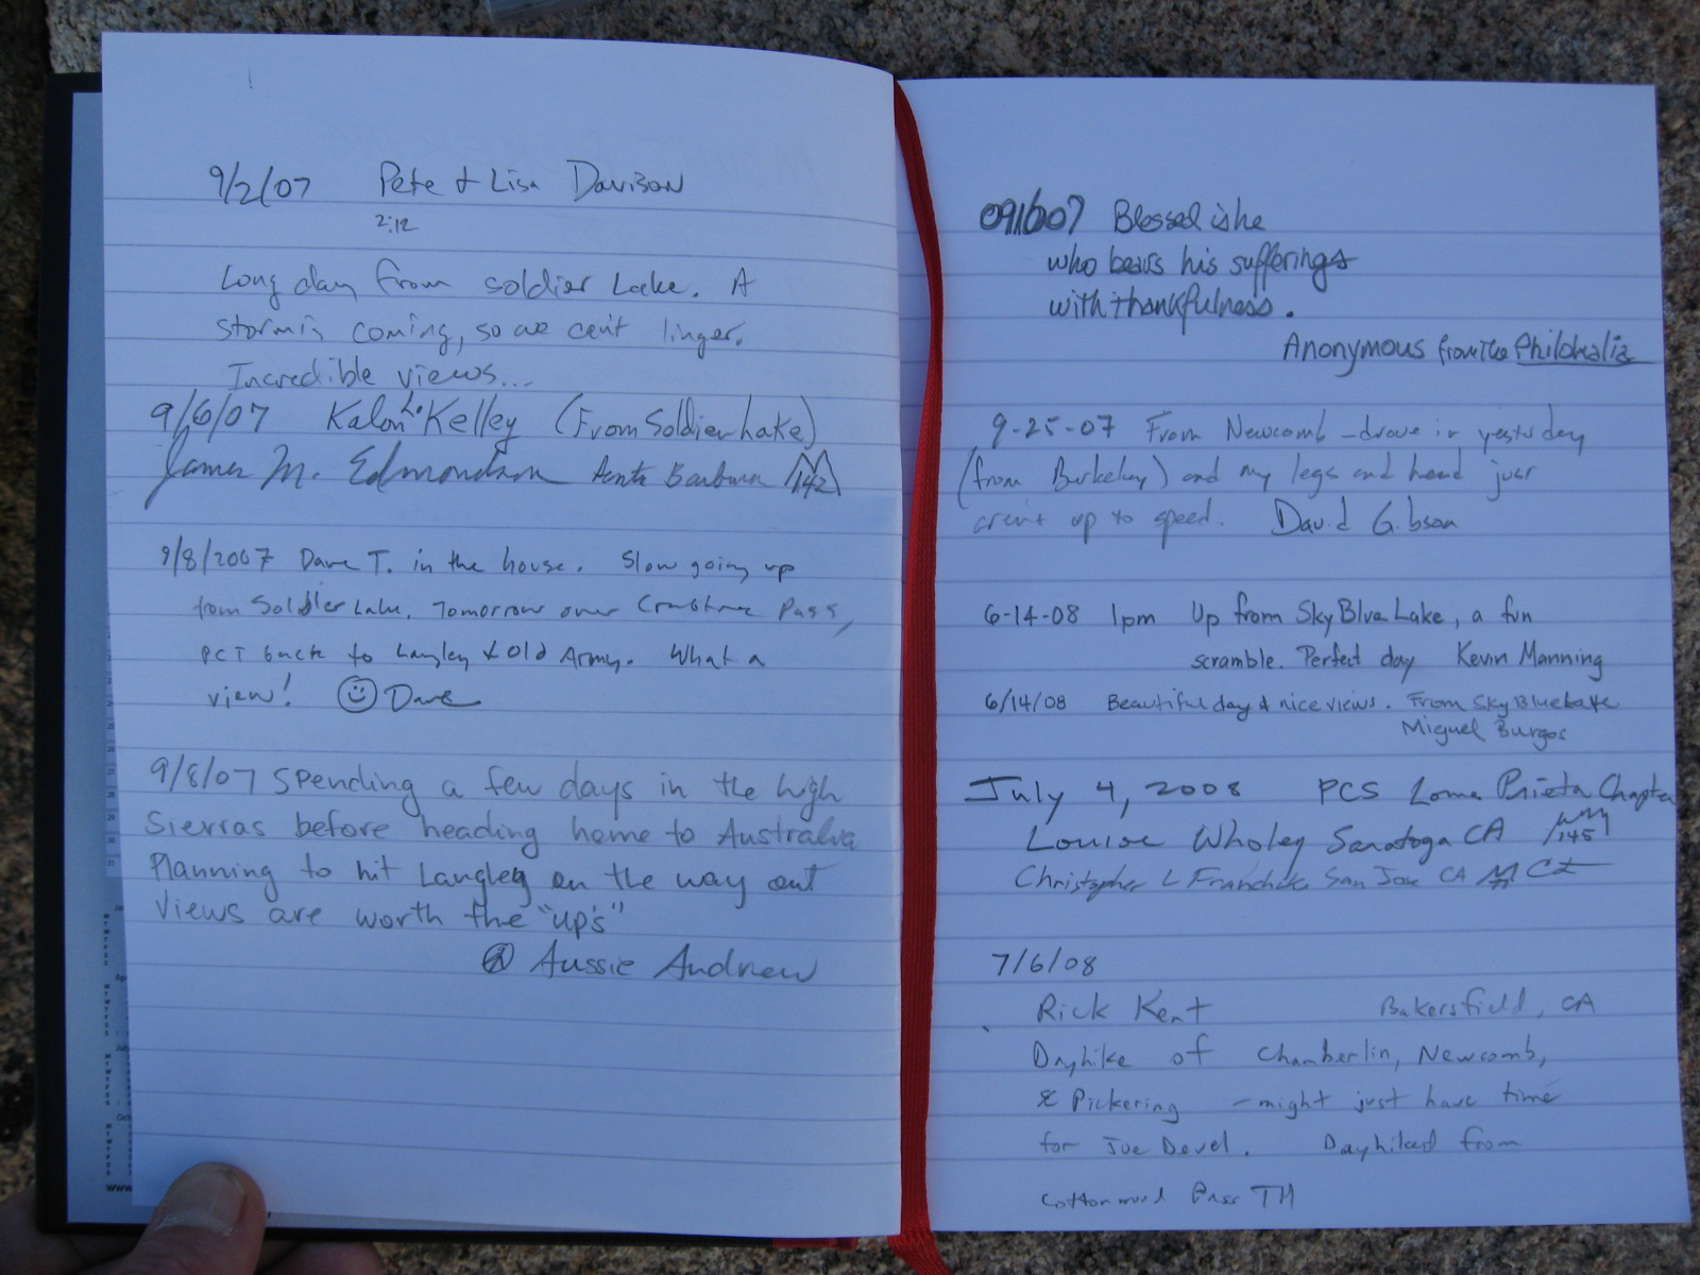 9/2/07 Pete & Lisa Davison
2:12
Long day from soldier Lake. A
storm is coming, so we can't linger.
Incredible views...
9/6/07 Kalon L. Kelley (From Soldier Lake)
James M. Edmondson Santa Barbara 142
9/8/2007 Dave T. in the house. Slow going up
from Soldier Lake. Tomorrow over Crabtree Pass,
PCT back to Langley & Old Army. What a
view! Dave
9/8/07 Spending a few days in the high
Sierras before heading home to Australia
Planning to hit Langley on the way out
Views are worth the "up's"
Aussie Andrew
091607 Blessed is he
who bears his sufferings
with thankfulness.
Anonymous from the Philokalia
9-25-07 From Newcomb - drove in yesterday
(from Berkeley) and my legs and head just
aren't up to speed. David Gibson
6-14-08 1pm Up from Sky Blue Lake, a fun
scramble. Perfect day Kevin Manning
6/14/08 Beautiful day & nice views. From Sky Blue Lake
Miguel Burgos
July 4, 2008 PCS Loma Prieta Chapter
Louise Wholey Saratoga CA 145
Christopher L Franchuk San Jose CA
7/6/08
Rick Kent Bakersfield, CA
Dayhike of Chamberlin, Newcomb,
& Pickering - might just have time
for Joe Devel. Dayhiked from
Cottonwood Pass TH